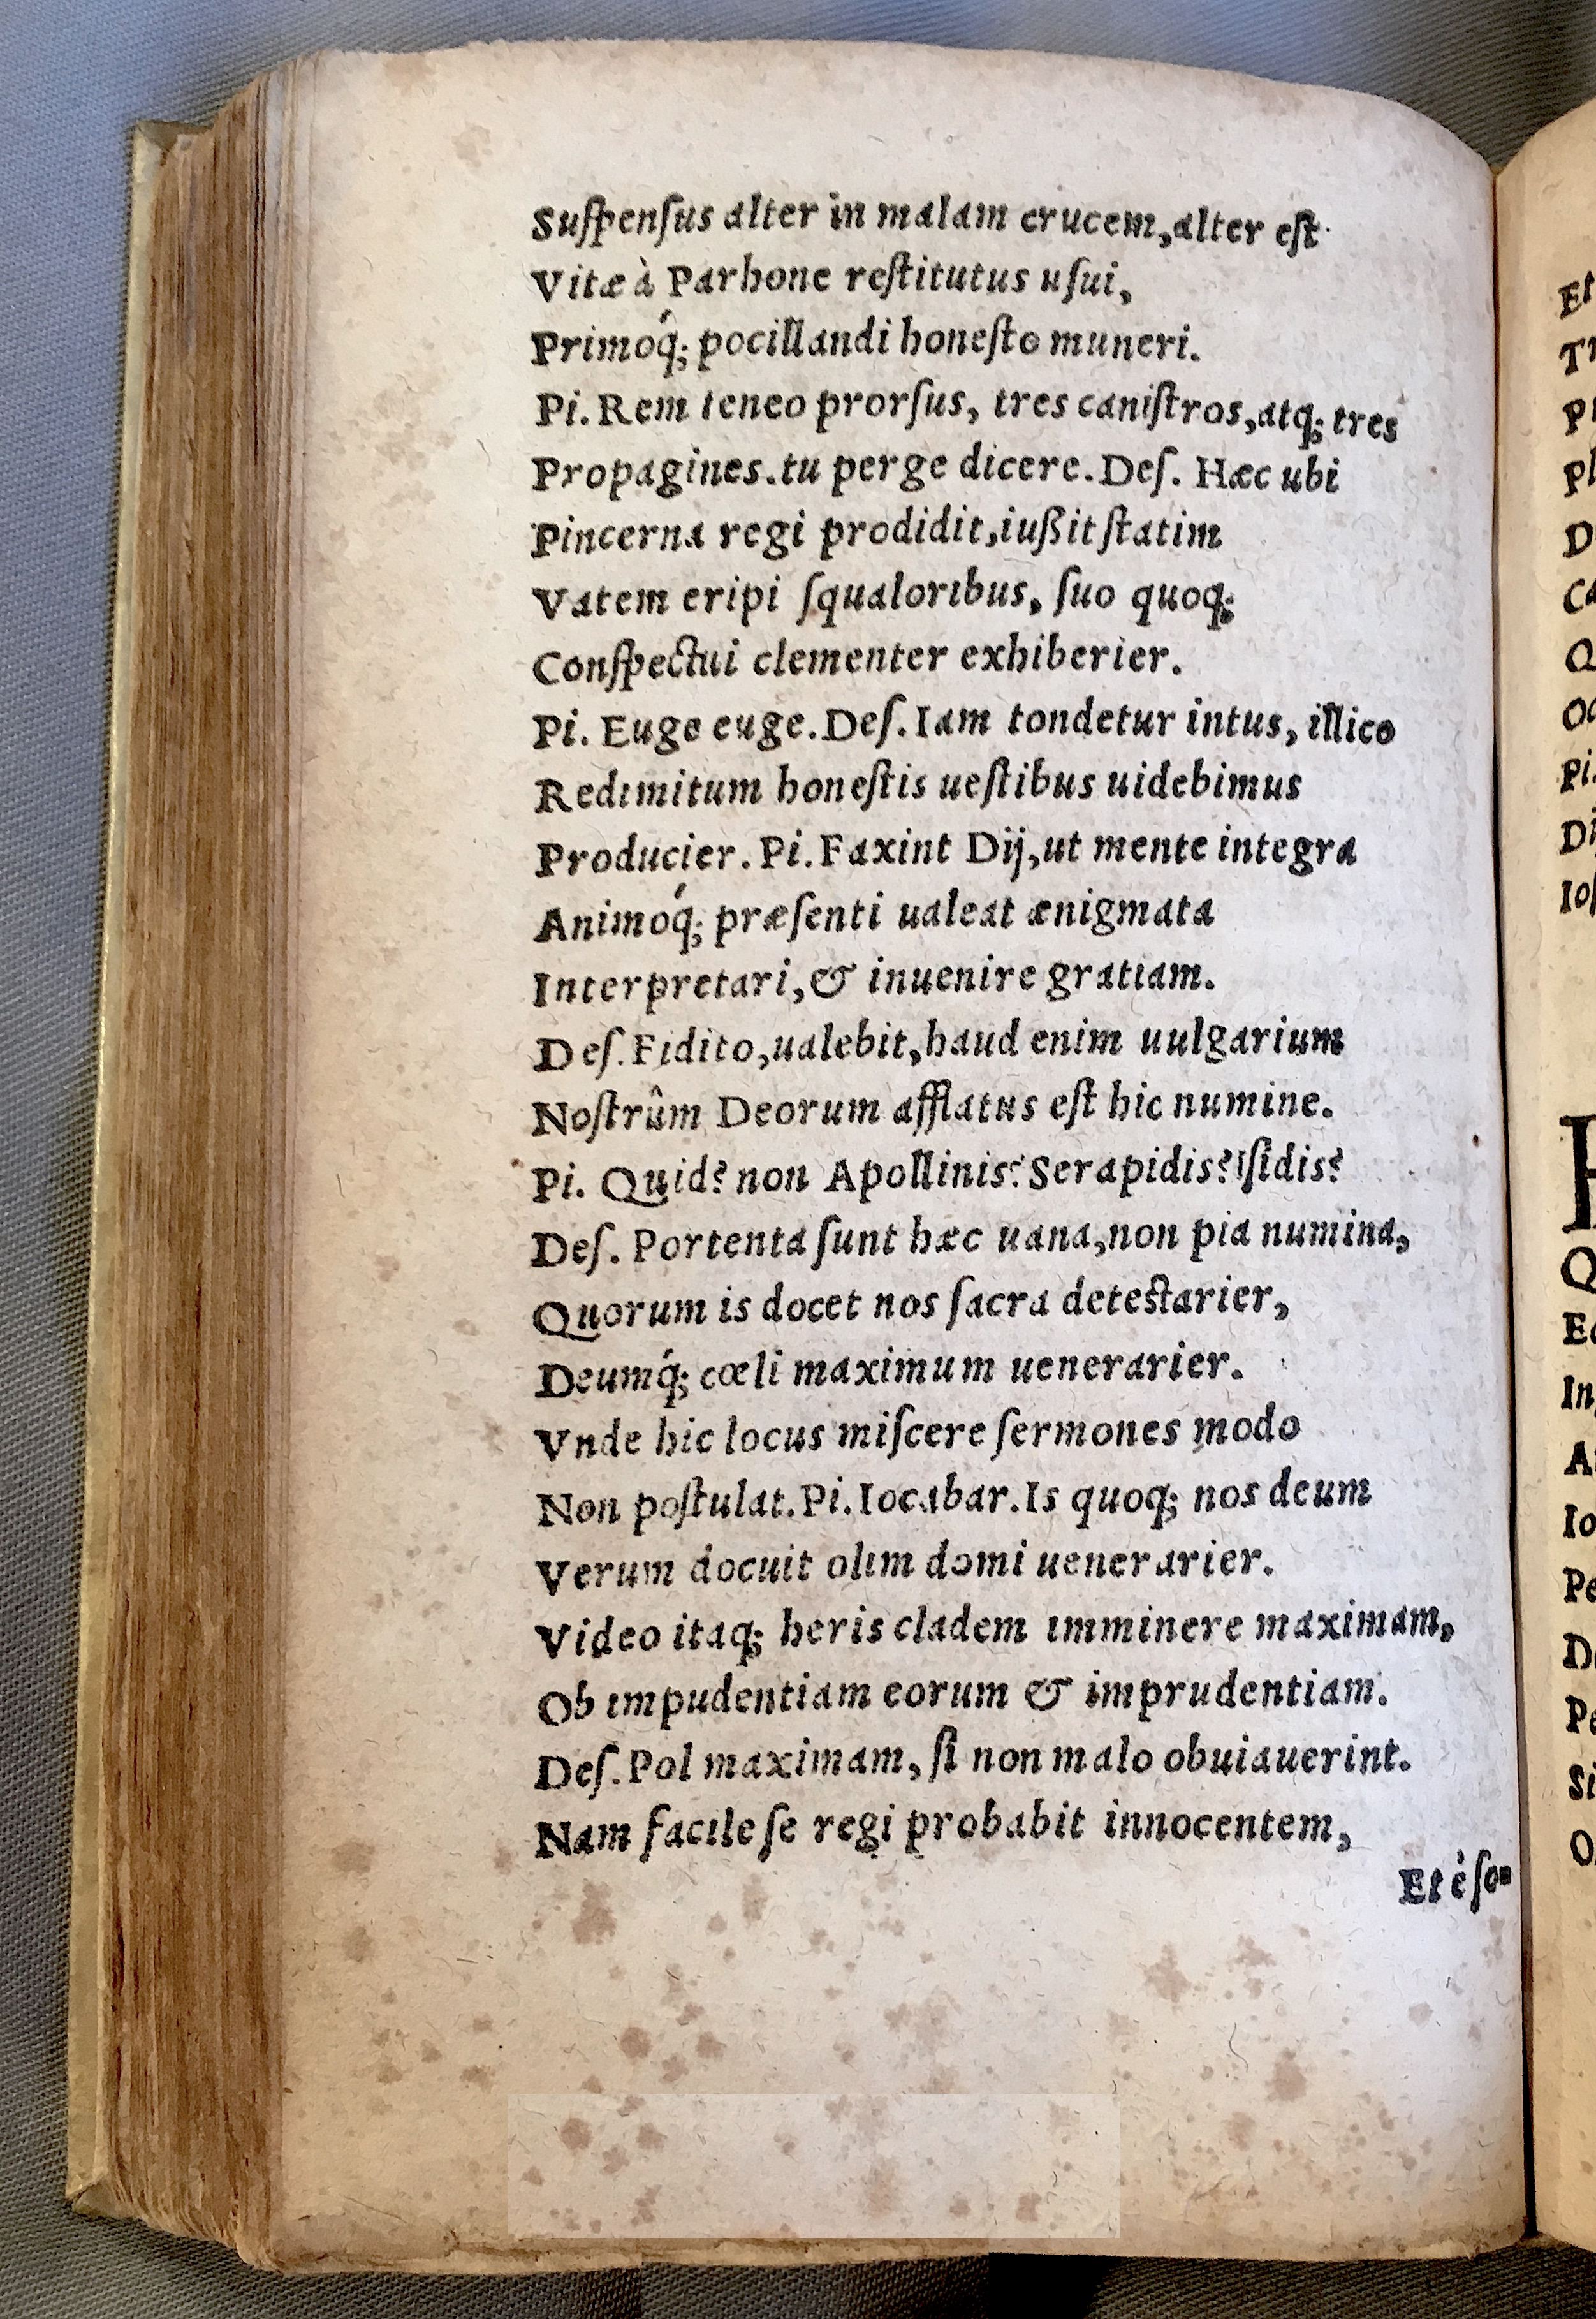 Suſpenſus alter in malam crucem, alter eſt
Vitæ à Parhone reſtitutus uſui,
Primoq́; pocillandi honeſto muneri.
Pi. Rem teneo prorſus, tres caniſtros, atq; tres
Propagines. tu perge dicere. Deſ. Hæc ubi
Pincerna regi prodidit, iußit ſtatim
Vatem eripi ſqualoribus, ſuo quoq;
Conſpectui clementer exhiberier.
Pi. Euge euge. Deſ. Iam tondetur intus, illico
Redimitum honeſtis ueſtibus uidebimus
Producier. Pi. Faxint Dij, ut mente integra
Animoq́; præſenti ualeat ænigmata
Interpretari, & inuenire gratiam.
Deſ. Fidito, ualebit, haud enim uulgarium
Noſtrûm Deorum afflatus eſt hic numine.
Pi. Quid? non Apollinis? Serapidis? Iſidis?
Deſ. Portenta ſunt hæc uana, non pia numina,
Quorum is docet nos ſacra deteſtarier,
Deumq́; cœli maximum uenerarier.
Vnde hic locus miſcere ſermones modo
Non poſtulat. Pi. Iocabar. Is quoq; nos deum
Verum docuit olim domi uenerarier.
Video itaq; heris cladem imminere maximam,
Ob impudentiam eorum & imprudentiam.
Deſ. Pol maximam, ſi non malo obuiauerint.
Nam facile ſe regi probabit innocentem,
Et è ſo-
Et
Pi.
D
Q
Pi.
Di
Q
In
Io
Pe
Pe
Si
O